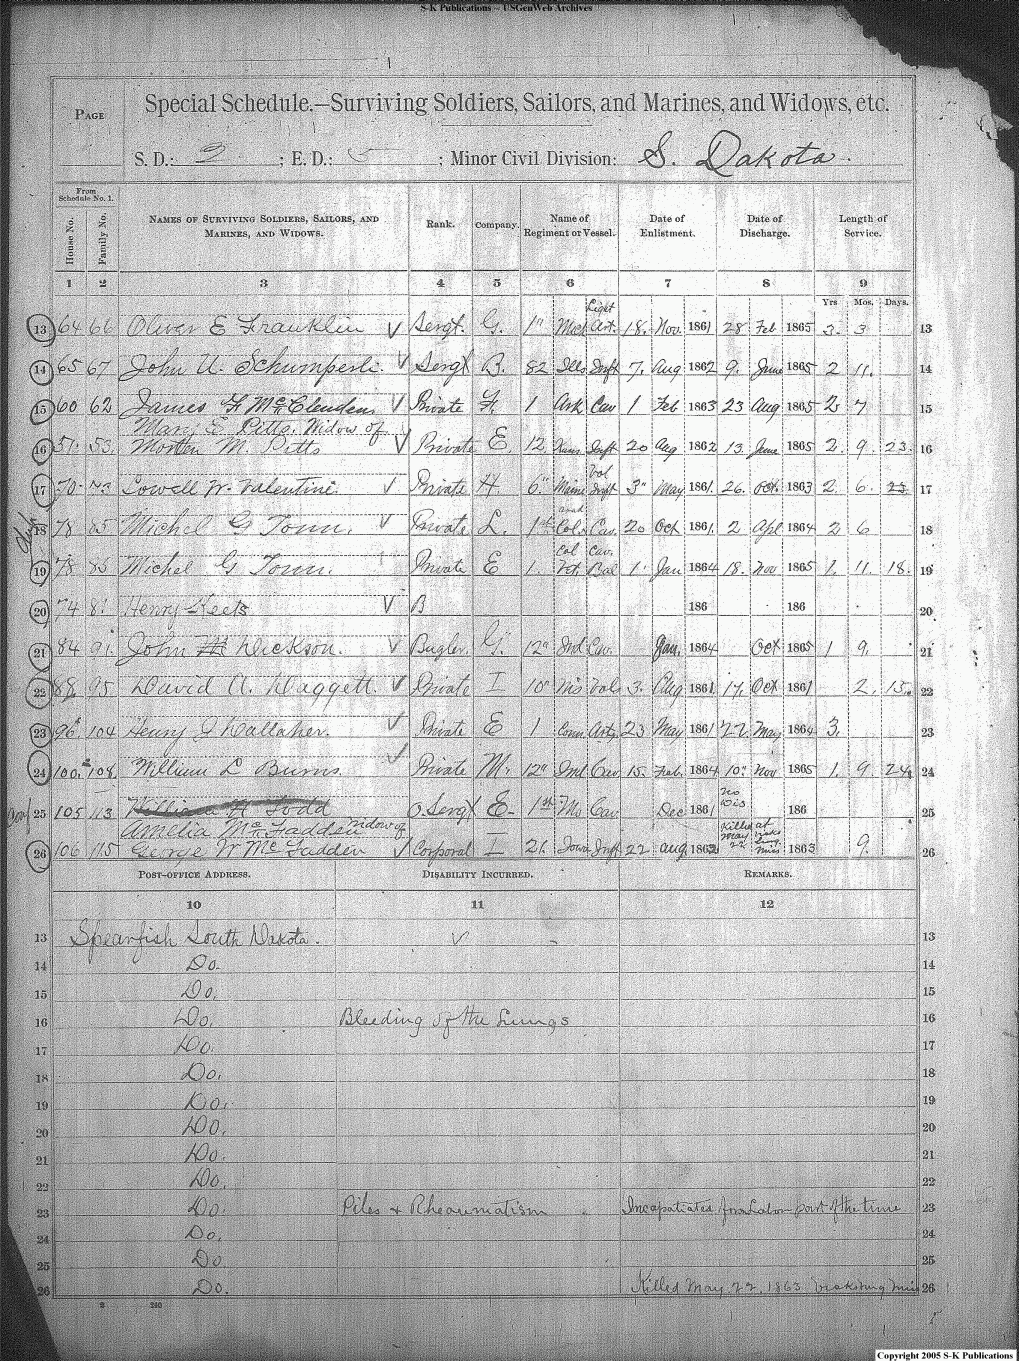 S-K Publications -- USGenWeb Archives
PAGE
Special Schedule.—Surviving Soldiers, Sailors, and Marines, and Widows, etc.
S. D.: 2 ; E. D.: ; Minor Civil Division: S. Dakota.
From Schedule No. 1.
House No. Family No. NAMES OF SURVIVING SOLDIERS, SAILORS, AND MARINES, AND WIDOWS. Rank. Company. Name of Regiment or Vessel. Date of Enlistment. Date of Discharge. Length of Service.
1 2 3 4 5 6 7 8 9
Yrs. Mos. Days.
13 64 66 Oliver E Franklin Sergt. G. 1" Mich Light Art. 18. Nov. 1861 28 Feb 1865 3. 3 13
14 65 67 John U. Schumperli. Sergt B. 82 Ills Inft 7. Aug 1862 9. June 1865 2 11. 14
15 60 62 James F. McClenden Private F. 1 Ark Cav 1 Feb 1863 23 Aug 1865 2 7 15
Mary E Pitts. Widow of
16 51. 53. Morten M. Pitts Private E. 12 Kans Inft 20 Aug 1862 13. June 1865 2. 9. 23. 16
17 70 Lowell W. Valentine. Private H. 6" Maine Vol Inft 3" May 1861. 26. Oct. 1863 2. 6. 23. 17
18 78 85 Michel G Tonn. Private L. 1st Col. Cav. 20 Oct 1861. 2 Apl 1864 2 6 18
19 78 85 Michel G Tonn. Private E 1. Col Cav. Vet. Bal 1 Jan 1864 18. Nov 1865 1. 11. 18. 19
20 74 81 Henry Keets B 186 186 20
21 84 91. John M Dickson. Bugler. G. 12" Ind Cav. Jan. 1864 Oct 1865 1 9. 21
22 88. 95 David A. Daggett. Private I 10" Vols 3. Aug 1861 17. Oct 1861 2. 15. 22
23 96 104 Henry J Kallaher. Private E 1 Conn Arty 23 May 1861 22 May 1864 3. 23
24 100. 108. William L Burns. Private M. 12" Ind Cav 15. Feb. 1864 10" Nov 1865 1. 9. 24 24
25 105 113 William H Todd O. Sergt E- 1st Mo Cav Dec 1861 no Dis 186 25
Amelia McFadden widow of
26 106 115 George W McFadden Corporal I 21. Iowa Inft 22 aug 1862 Killed at May 22 1863 9. 26
POST-OFFICE ADDRESS. DISABILITY INCURRED. REMARKS.
10 11 12
13 Spearfish South Dakota. 13
14 Do. 14
15 Do. 15
16 Do. Bleeding of the Lungs 16
17 Do. 17
18 Do. 18
19 Do. 19
20 Do. 20
21 Do. 21
22 Do. 22
23 Do. Piles + Rheaumatism Incapatiated from Labor part of the time 23
24 Do. 24
25 Do 25
26 Do. Killed May 22, 1863 26
2 280
Copyright 2005 S-K Publications